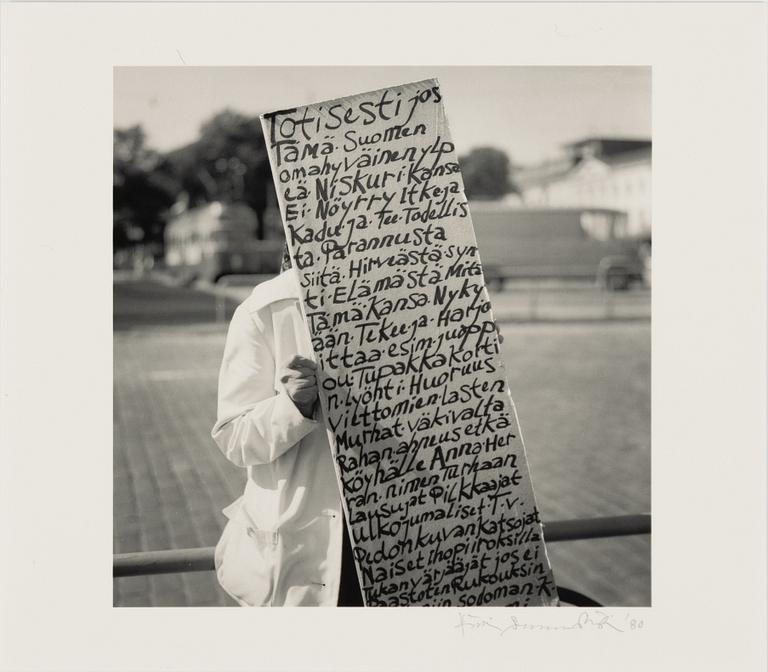 Totisesti jos
Tämä. Suomen
omahyväinen ylp
eä. Niskuri. Kansa
Ei. Nöyrry Itkeja
Kadu ja. Tee. Todellis
ta. Parannusta
siitä. Hirveästä. syn
ti. Elämästä. Mitä
Tämä. Kansa. Nyky
ään. Tekee ja. Harjo
ittaa. esim. juopp
ou. Tupakka kortti
n. Lyöhti. Huoruus
vilttomien. Lasten
Murhat. väkivalta
Rahan. ahneus etkä
köyhälle Anna. Her
ran. nimen Turhaan
Lausujat Pilkkaajat
ulkojumaliset T.v.
Pedonkuvan Katsojat
Naiset ihopiiroksilla
Tukanvärjääjät jos ei
Paastoten Rukouksin
soloman. K.
'80